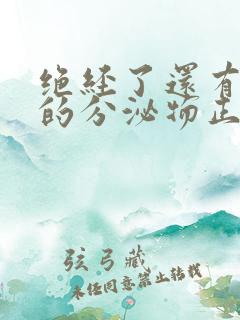 绝经了還有
的分泌物正
弦弓藏
未经同意禁止转载